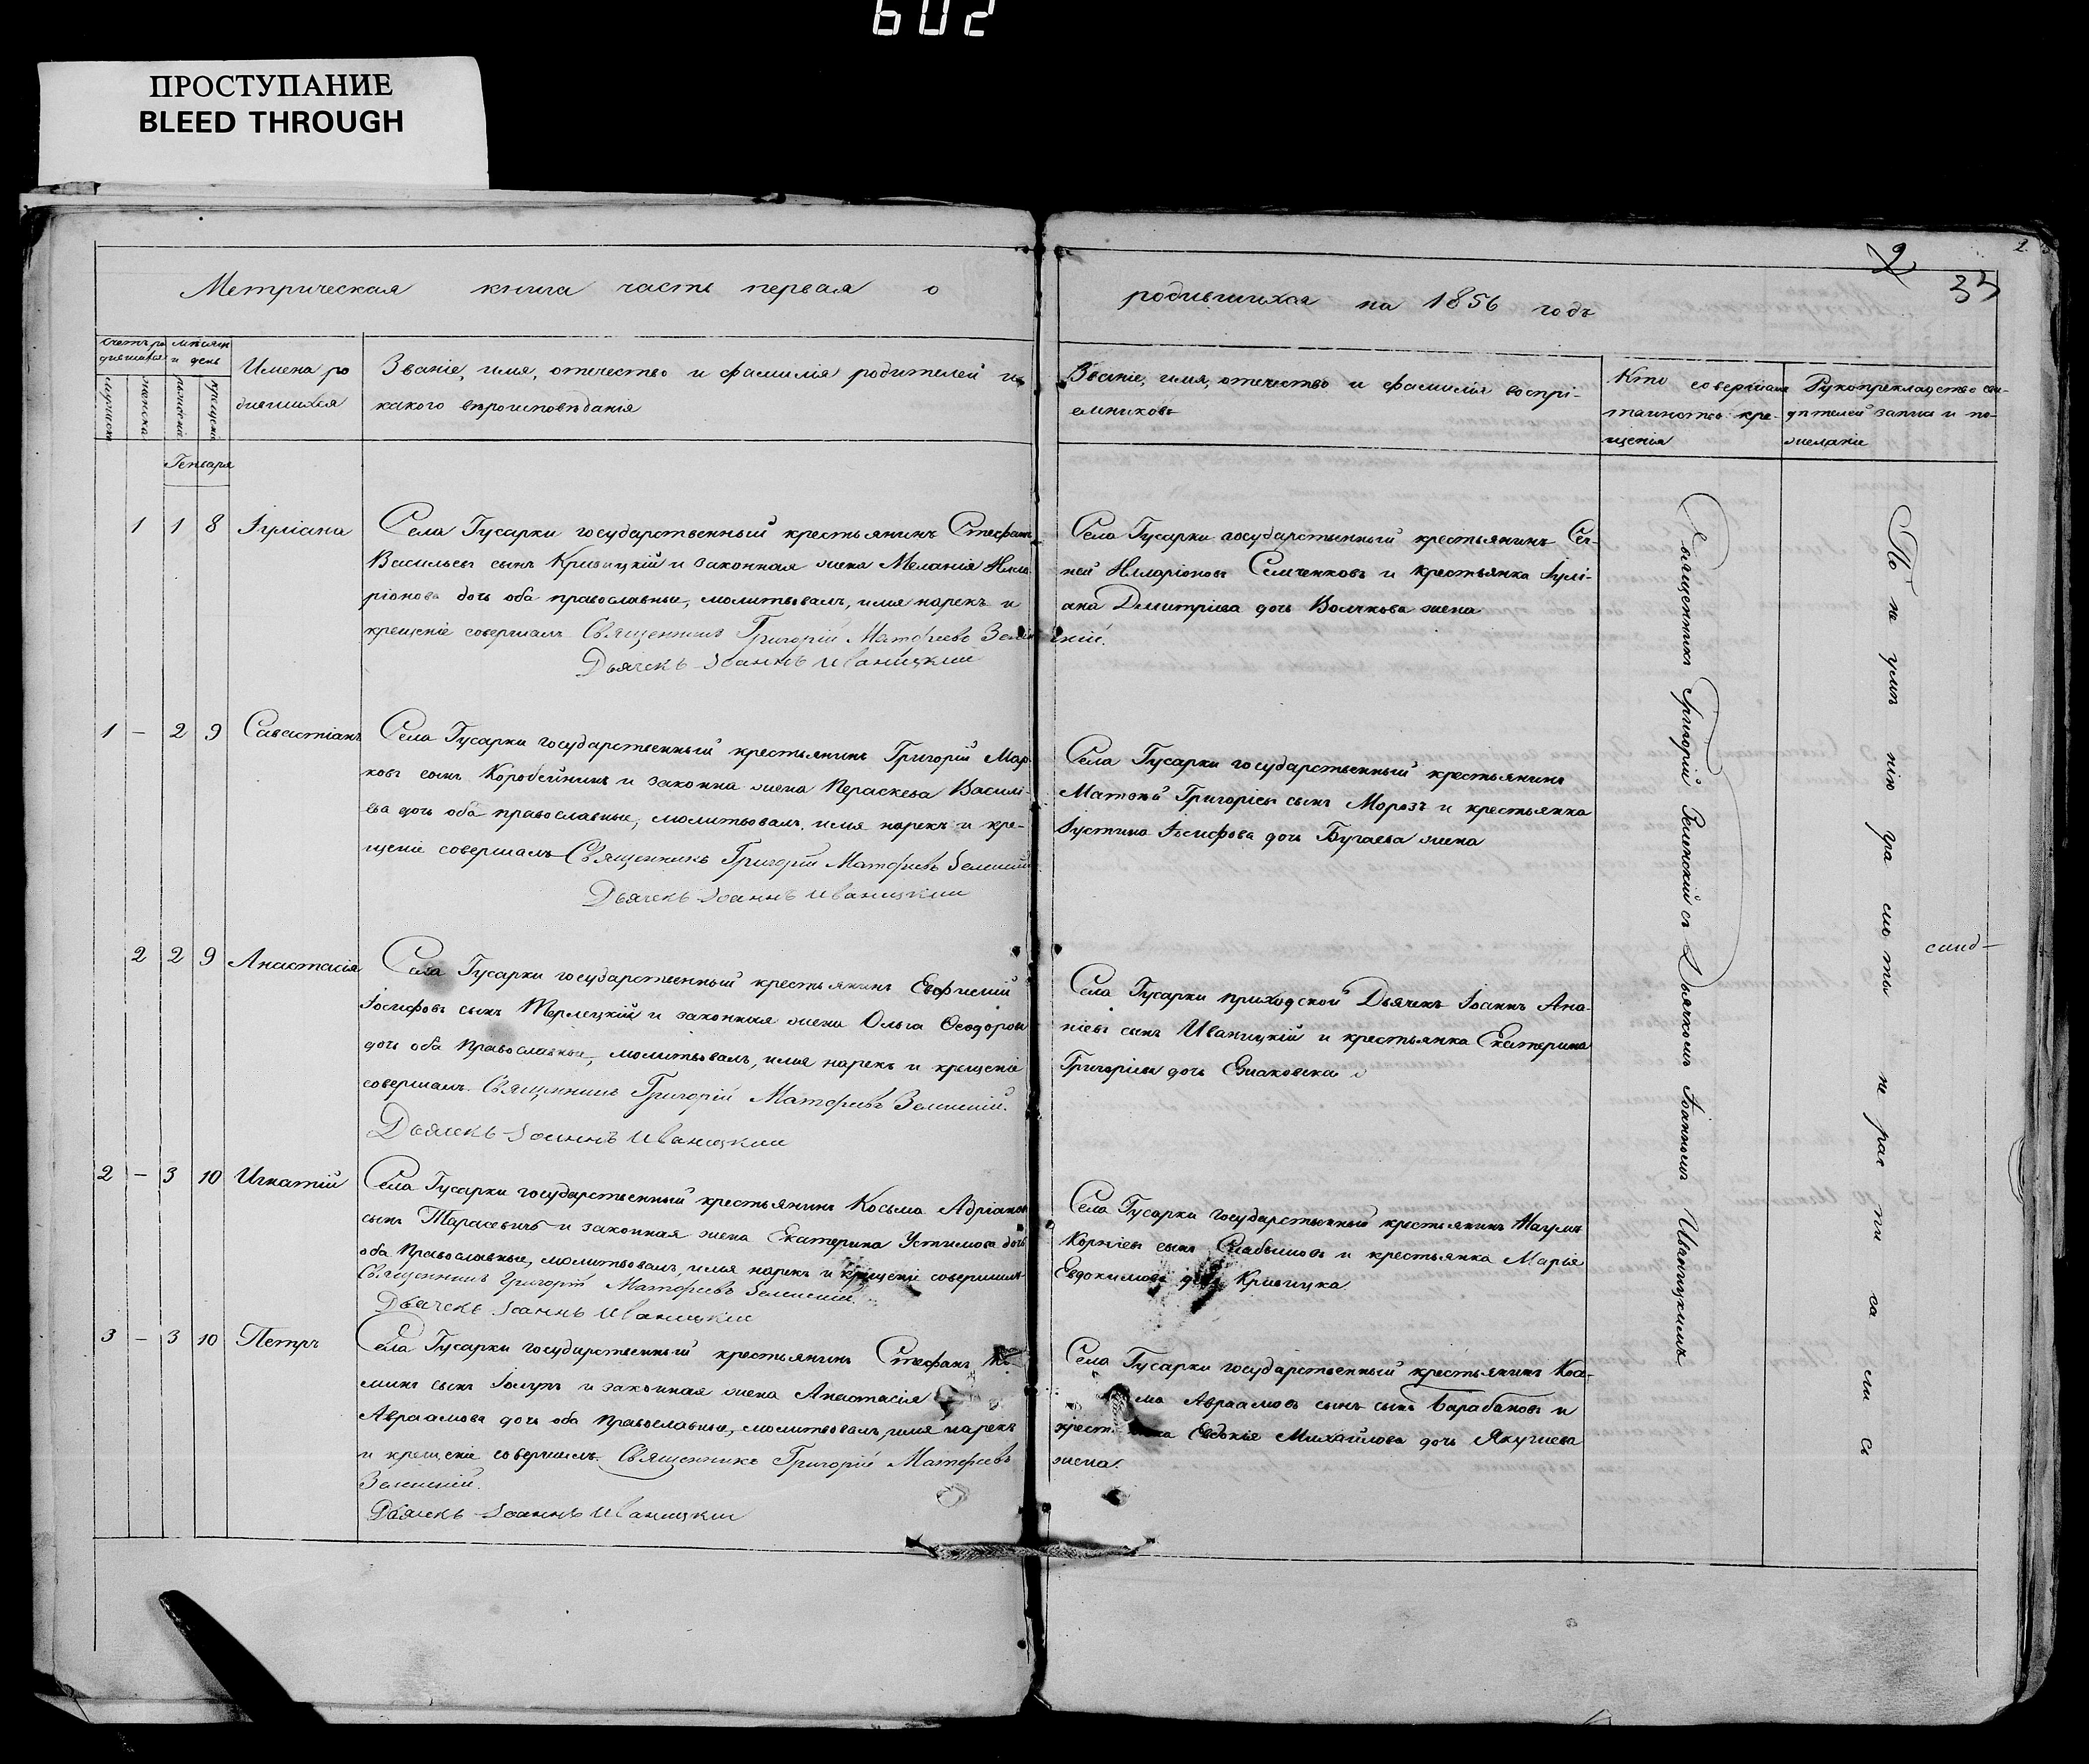 602
ПРОСТУПАНИЕ
BLEED THROUGH
2
9
33
Метрическая книга часть первая о
родившихся на 1856 годъ
Имена ро
дившихся
Званіе, имя, отечество и фамилія родителей и
какого вѣроисповѣданія
Званіе, имя, отечество и фамилія воспрі-
емниковъ
Кто совершалъ
таинство кре-
щенія
Рукоприкладство сви-
дѣтелей записи по
желанію
Генваря
1 1 8 Іуліана
Села Гусарки государственный крестьянинъ Стефанъ
Васильевъ сынъ Кривицкій и законная жена Меланія Илла-
ріонова дочь оба православные, молитвовалъ, имя нарекъ и
крещеніе совершалъ Священникъ Григорій Матфеевъ Зелинскій.
Дьячекъ Іоаннъ Иваницкий
Села Гусарки государственный крестьянинъ Сер-
гей Илларіоновъ Семченковъ и крестьянка Іулі-
ана Дмитріева дочь Волчкова жена
1 – 2 9 Савастіанъ
Села Гусарки государственный крестьянинъ Григорій Мар-
ковъ сынъ Коробейникъ и законна жена Пераскева Василі-
ева дочь оба православные, молитвовалъ, имя нарекъ и кре-
щеніе совершалъ Священникъ Григорій Матфеевъ Зелинскій
Дьячекъ Іоаннъ Иваницкий
Села Гусарки государственный крестьянинъ
Матвей Григоріевъ сынъ Морозъ и крестьянка
Іустина Іосифова дочь Бугаева жена
2 2 9 Анастасія
Села Гусарки государственный крестьянинъ Евфимий
Іосифовъ сынъ Терлецкій и законная жена Ольга Ѳеодорова
дочь оба Православные, молитвовалъ, имя нарекъ и крещеніе
совершалъ. Священникъ Григорій Матфеевъ Зелинский.
Дьячекъ Іоаннъ Иваницкий
Села Гусарки приходской Дьячекъ Іоаннъ Ана-
ніевъ сынъ Иваницкій и крестьянка Екатерина
Григоріева дочь
2 – 3 10 Игнатій
Села Гусарки государственный крестьянинъ Косьма Адріановъ
сынъ Тарасевичъ и законная жена Екатерина Устимова дочь
оба Православные, молитвовалъ, имя нарекъ и крещеніе совершалъ
Священникъ Григорій Матфеевъ Зелинский.
Дьячекъ Іоаннъ Иваницкий
Села Гусарки государственный крестьянинъ Наумъ
Корніевъ сынъ Слабышовъ и крестьянка Марія
Евдокимова дочь Кривицка
3 – 3 10 Петръ
Села Гусарки государственный крестьянинъ Стефанъ
минъ сынъ и законная жена Анастасія
Авраамова дочь оба Православные, молитвовалъ, имя нарекъ
и крещеніе совершалъ. Священникъ Григорій Матфеевъ
Зелинский.
Дьячекъ Іоаннъ Иваницкий
Села Гусарки государственный крестьянинъ Кось-
ма Авраамовъ сынъ сынъ Барабановъ и
крест ка Евдокія Михайлова дочь Якушева
жена.
Священникъ Григорій Зелинский съ Дьячкомъ Іоанномъ Иваницкимъ
По не умѣ нію гра мо ты не рас пи са ли сь